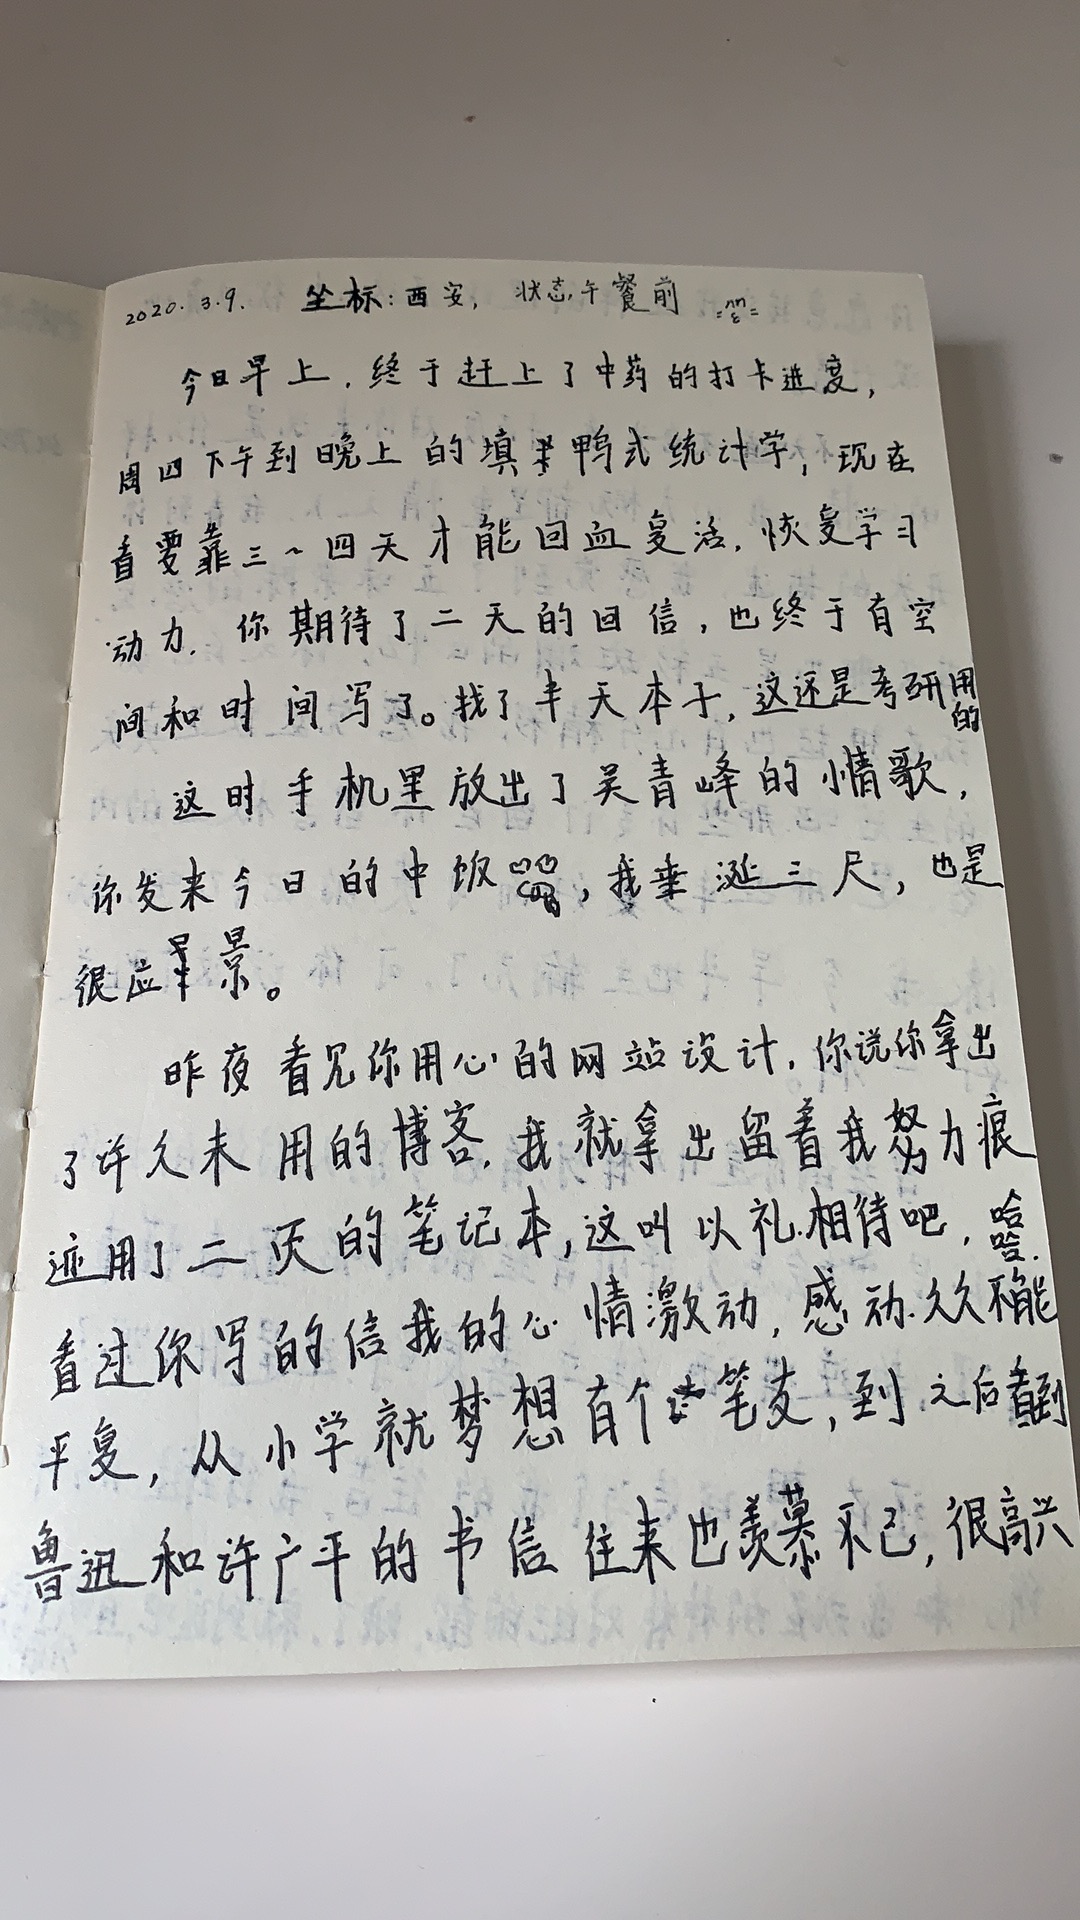 2020.3.9. 坐标:西安, 状态,午餐前
今日早上,终于赶上了中药的打卡进度,
周四下午到晚上的填鸭式统计学,现在
看要靠三~四天才能回血复活,恢复学习
动力,你期待了二天的回信,也终于有空
间和时间写了。找了半天本子,这还是考研用的
这时手机里放出了吴青峰的小情歌,
你发来今日的中饭,我垂涎三尺,也是
很应景。
昨夜看见你用心的网站设计,你说你拿出
了许久未用的博客,我就拿出留着我努力痕
迹用了二页的笔记本,这叫以礼相待吧,哈哈.
看过你写的信我的心情激动,感动久久不能
平复,从小学就梦想有个笔友,到之后看到
鲁迅和许广平的书信往来也羡慕不已,很高兴